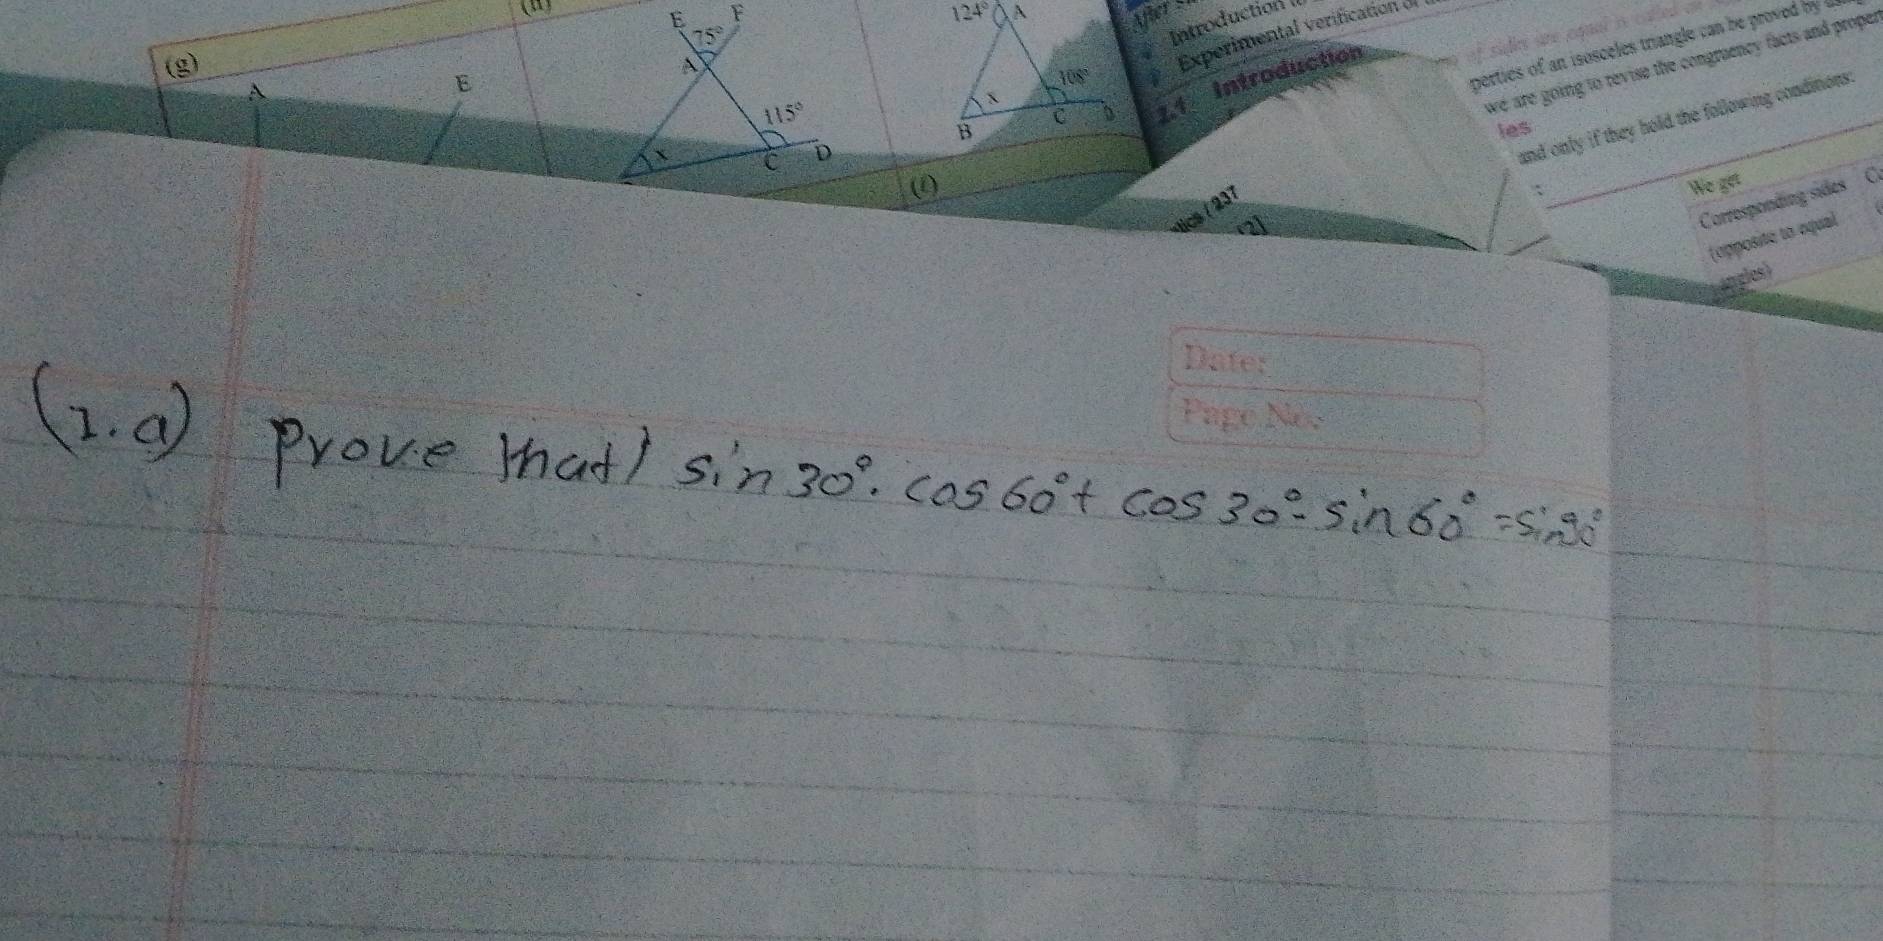 (g)
A
E
E
F
75°
A
115°
x
C
D
124°
A
108°
x
B
C
D
(i)
Introduction
Experimental verification
2.1 Introduction
perties of an isosceles triangle can be proved by
we are going to revise the congruency facts and proper
les
and only if they hold the following conditions:
We get
Corresponding sides
(opposite to equal
angles)
/ 237
Date:
Page No.:
(1.a) prove that/ sin 30°. cos 60° + cos 30°. sin 60° = sin 90°